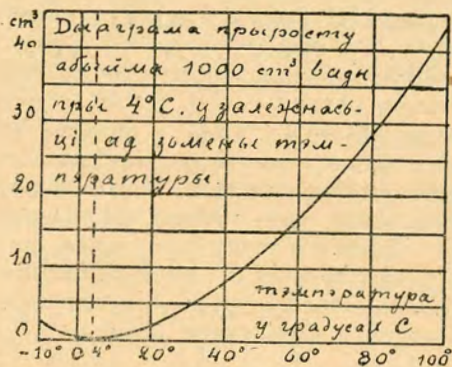 cm³
Дыяграма прыросту
40
абыйма 1000 cm³ вады
пры 4°C. у залежнась-
30
ці ад зьмены тэм-
пэратуры.
20
10
тэмпэратура
у градусах C
0
-10° 0 4° 20° 40° 60° 80° 100°